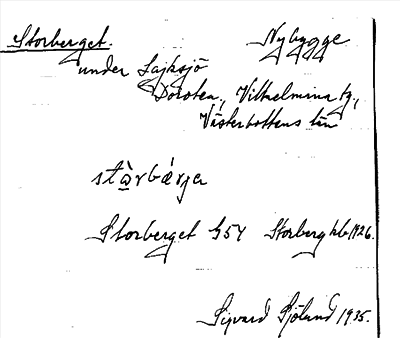 Storberget. Nybygge
under Lajksjö
Dorotea, Vilhelmina tg,
Västerbottens län
stàrbárja
Storberget G54 Storberg hlb 1926.
Sigvard Sjöland 1935.